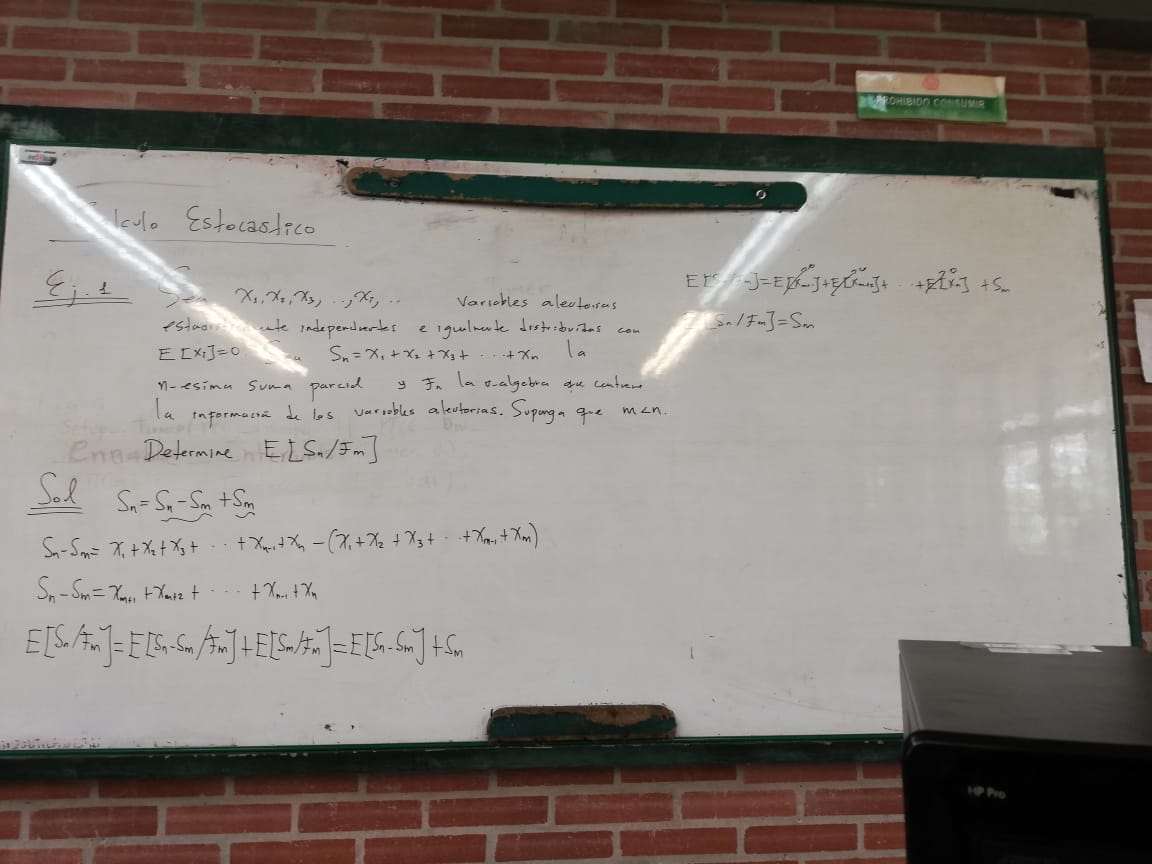 PROHIBIDO CONSUMIR
Estocastico
Ej. 1 X₁, X₂, X₃, ..., Xᵢ, .. Variables aleatorias
independientes e igualmente distribuidas con
E[Xᵢ]=0 Sₙ = X₁ + X₂ + X₃ + ... + Xₙ la
n-esima suma parcial y Fₙ la σ-algebra que contiene
la información de las variables aleatorias. Suponga que m<n.
Determine E[Sₙ/Fₘ]
Sol Sₙ = Sₙ - Sₘ + Sₘ
Sₙ-Sₘ = X₁ + X₂ + X₃ + ... + Xₙ₋₁ + Xₙ - (X₁ + X₂ + X₃ + ... + Xₘ₋₁ + Xₘ)
Sₙ-Sₘ = Xₘ₊₁ + Xₘ₊₂ + ... + Xₙ₋₁ + Xₙ
E[Sₙ/Fₘ] = E[Sₙ-Sₘ/Fₘ] + E[Sₘ/Fₘ] = E[Sₙ-Sₘ] + Sₘ
=E[Xₘ₊₁]+E[Xₘ₊₂]+ ... +E[Xₙ] + Sₘ
[Sₙ/Fₘ]=Sₘ
HP Pro